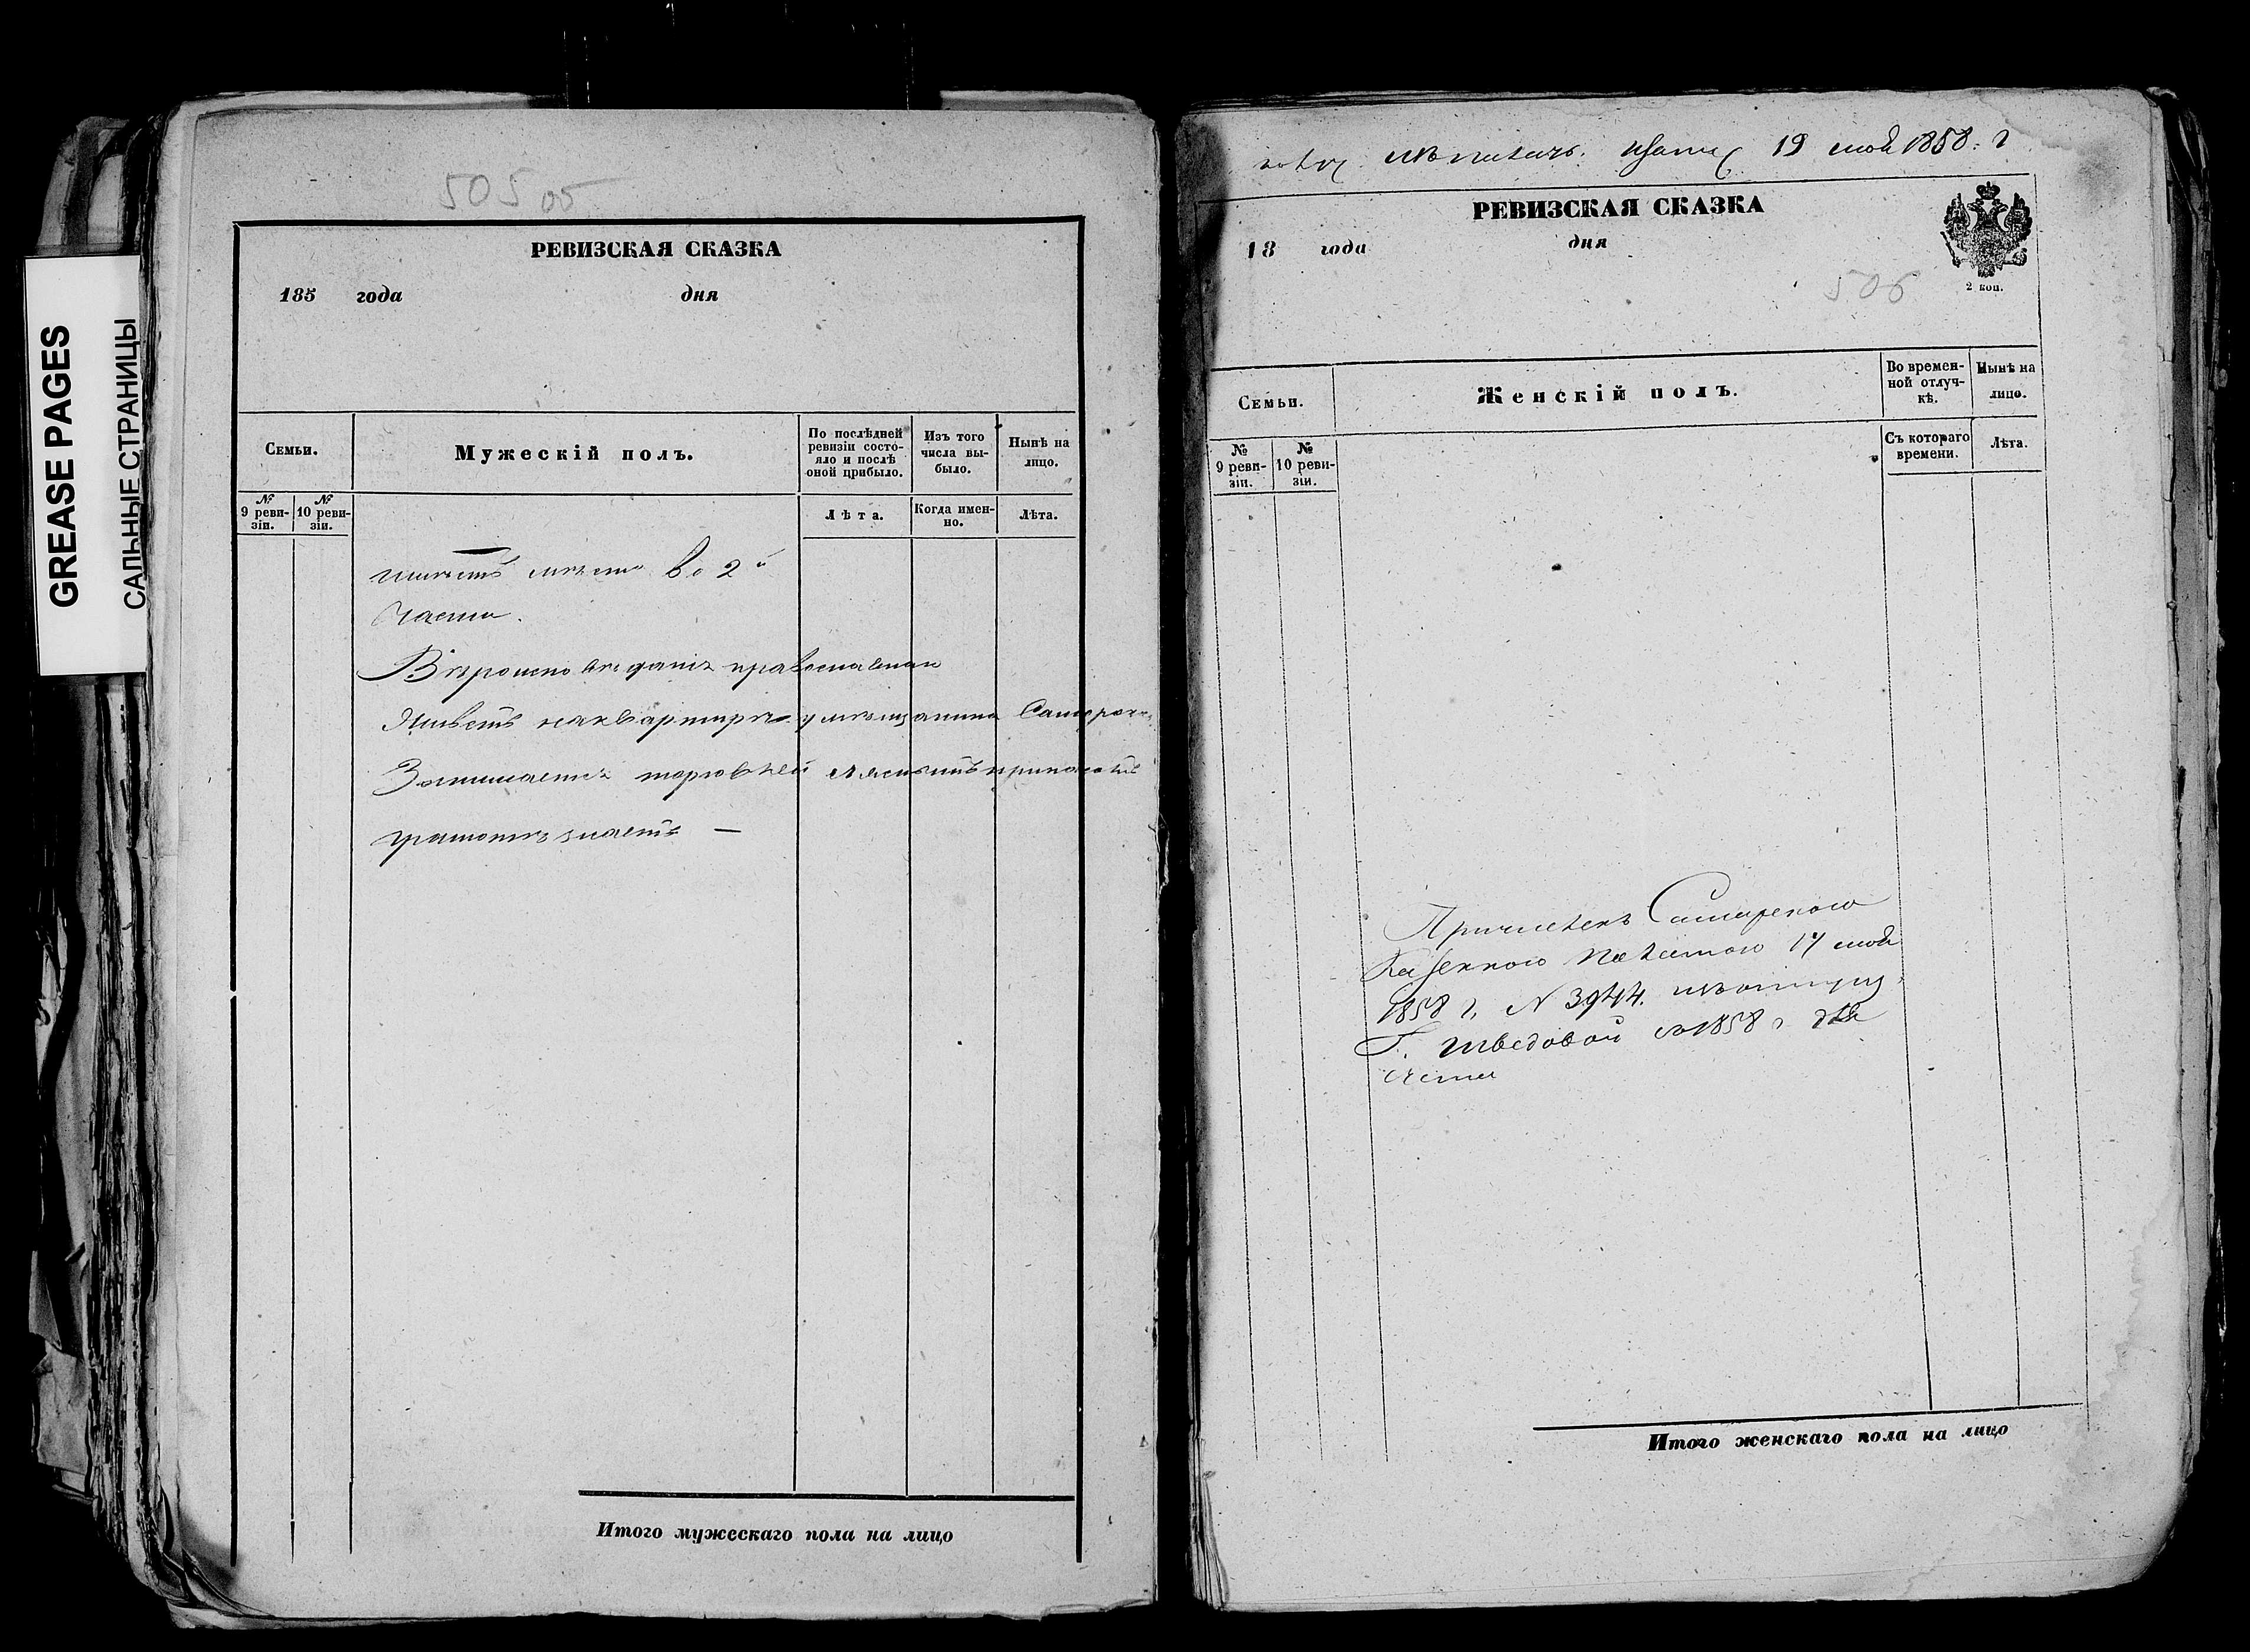 GREASE PAGES
САЛЬНЫЕ СТРАНИЦЫ
505 об
РЕВИЗСКАЯ СКАЗКА
185 года дня
Семьи.
Мужескій полъ.
По послѣдней ревизіи состояло и послѣ оной прибыло.
Изъ того числа выбыло.
Нынѣ на лицо.
№ 9 ревизіи.
№ 10 ревизіи.
Лѣта.
Когда именно.
Лѣта.
имѣетъ мѣсто во 2й
части.
Вѣроисповѣданія православнаго
Живетъ на квартирѣ у мѣщанина
Занимается торговлей
грамотѣ знаетъ —
Итого мужескаго пола на лицо
19 мая 1858. г
РЕВИЗСКАЯ СКАЗКА
18 года дня
506
2 коп.
Семьи.
Женскій полъ.
Во временной отлучкѣ.
Нынѣ на лицо.
№ 9 ревизіи.
№ 10 ревизіи.
Съ котораго времени.
Лѣта.
Причисленъ Самарскою
Казенною Палатою 17 мая
1858 г. N 3944.
Г. Шведовой съ 1858 г.
Итого женскаго пола на лицо